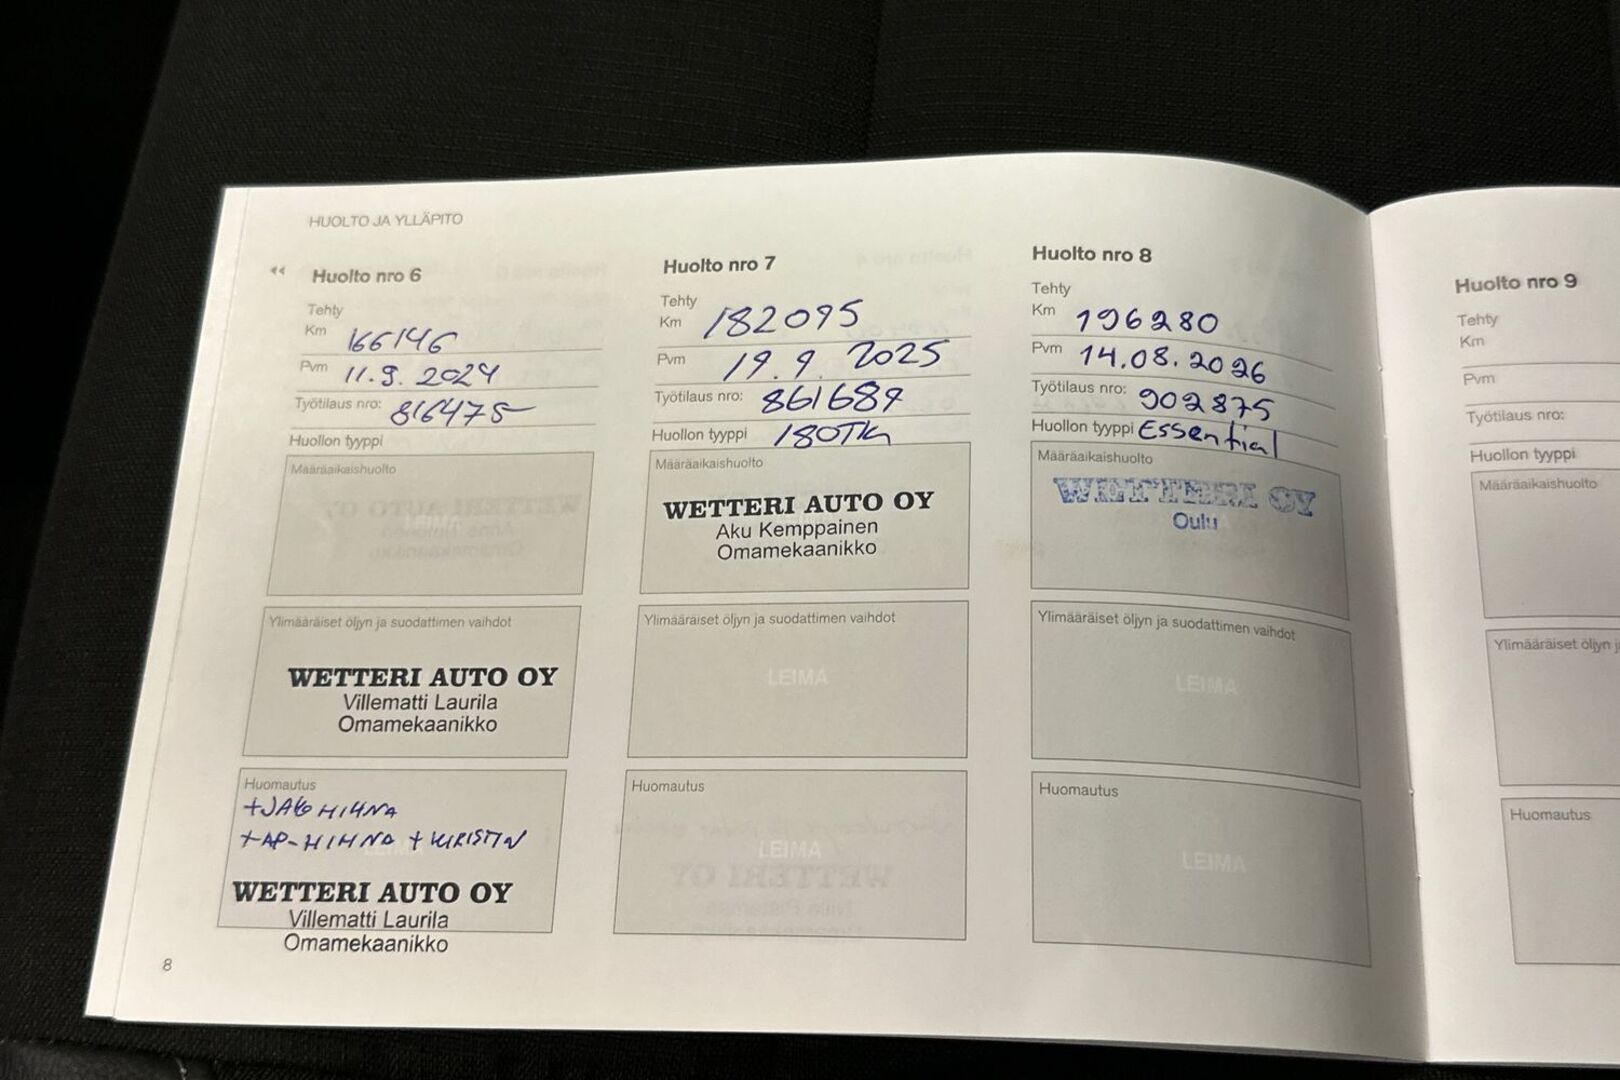 HUOLTO JA YLLÄPITO
Huolto nro 6
Tehty
Km 166146
Pvm 11.9.2024
Työtilaus nro: 816475
Huollon tyyppi
Määräaikaishuolto
Ylimääräiset öljyn ja suodattimen vaihdot
WETTERI AUTO OY
Villematti Laurila
Omamekaanikko
Huomautus
+JAKOHIHNA
+AP-HIHNA + KIRISTIN
WETTERI AUTO OY
Villematti Laurila
Omamekaanikko
8
Huolto nro 7
Tehty
Km 182095
Pvm 19.9.2025
Työtilaus nro: 861689
Huollon tyyppi 180TKM
Määräaikaishuolto
WETTERI AUTO OY
Aku Kemppainen
Omamekaanikko
Ylimääräiset öljyn ja suodattimen vaihdot
LEIMA
Huomautus
LEIMA
Huolto nro 8
Tehty
Km 196280
Pvm 14.08.2026
Työtilaus nro: 902875
Huollon tyyppi Essential
Määräaikaishuolto
WETTERI OY
Oulu
Ylimääräiset öljyn ja suodattimen vaihdot
LEIMA
Huomautus
LEIMA
Huolto nro 9
Tehty
Km
Pvm
Työtilaus nro:
Huollon tyyppi
Määräaikaishuolto
Ylimääräiset öljyn j
Huomautus